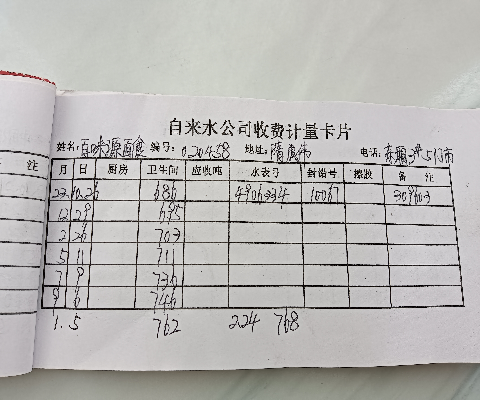 自来水公司收费计量卡片
姓名:百味源面食 编号:020458 地址: 电话:
注 月 日 厨房 卫生间 应收吨 水表号 封铅号 摊数 备 注
22.10.26 686 4906334 10067
12 29 695
2 26 703
5 11 711
7 9 736
9 6 746
1.5 762 224 768